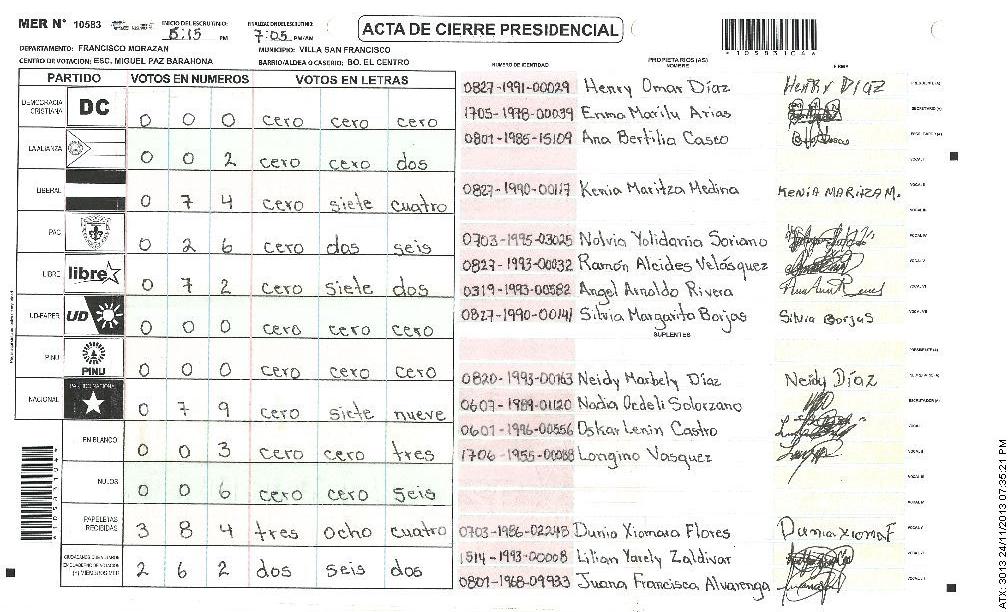 MER N° 10583 INICIO DEL ESCRUTINIO: 5:15 PM FINALIZACION DEL ESCRUTINIO: 7:05 PM/AM
ACTA DE CIERRE PRESIDENCIAL
DEPARTAMENTO: FRANCISCO MORAZAN MUNICIPIO: VILLA SAN FRANCISCO
CENTRO DE VOTACION: ESC. MIGUEL PAZ BARAHONA BARRIO/ALDEA O CASERIO: BO. EL CENTRO
PARTIDO VOTOS EN NUMEROS VOTOS EN LETRAS
DEMOCRACIA CRISTIANA DC 0 0 0 cero cero cero
LA ALIANZA 0 0 2 cero cero dos
LIBERAL 0 7 4 cero siete cuatro
PAC 0 2 6 cero dos seis
LIBRE libre 0 7 2 cero siete dos
UD-FAPER UD 0 0 0 cero cero cero
PINU PINU 0 0 0 cero cero cero
NACIONAL 0 7 9 cero siete nueve
EN BLANCO 0 0 3 cero cero tres
NULOS 0 0 6 cero cero seis
PAPELETAS RECIBIDAS 3 8 4 tres ocho cuatro
2 6 2 dos seis dos
NUMERO DE IDENTIDAD PROPIETARIOS (AS) NOMBRE FIRMA
0827-1991-00029 Henry Omar Díaz Henry Díaz
1705-1978-00039 Enma Marilu Arias
0801-1985-15109 Ana Bertilia Casco
0827-1990-00117 Kenia Maritza Medina KENIA MARITZA M.
0703-1995-03025 Nolvia Yolidania Soriano
0827-1993-00032 Ramón Alcides Velásquez
0319-1993-00582 Angel Arnoldo Rivera
0827-1990-00141 Silvia Margarita Borjas Silvia Borjas
SUPLENTES
0820-1993-00163 Neidy Marbely Díaz Neidy Díaz
0607-1989-01120 Nadia Dedeli Solorzano
0601-1996-00556 Oskar Lenin Castro
1706-1955-00088 Longino Vasquez
0703-1986-02248 Dunia Xiomara Flores Dunia Xioma F
1514-1993-00008 Lilian Yarely Zaldivar
0801-1968-09933 Juana Francisca Alvarenga
ATX-3013 24/11/2013 07:35:21 PM